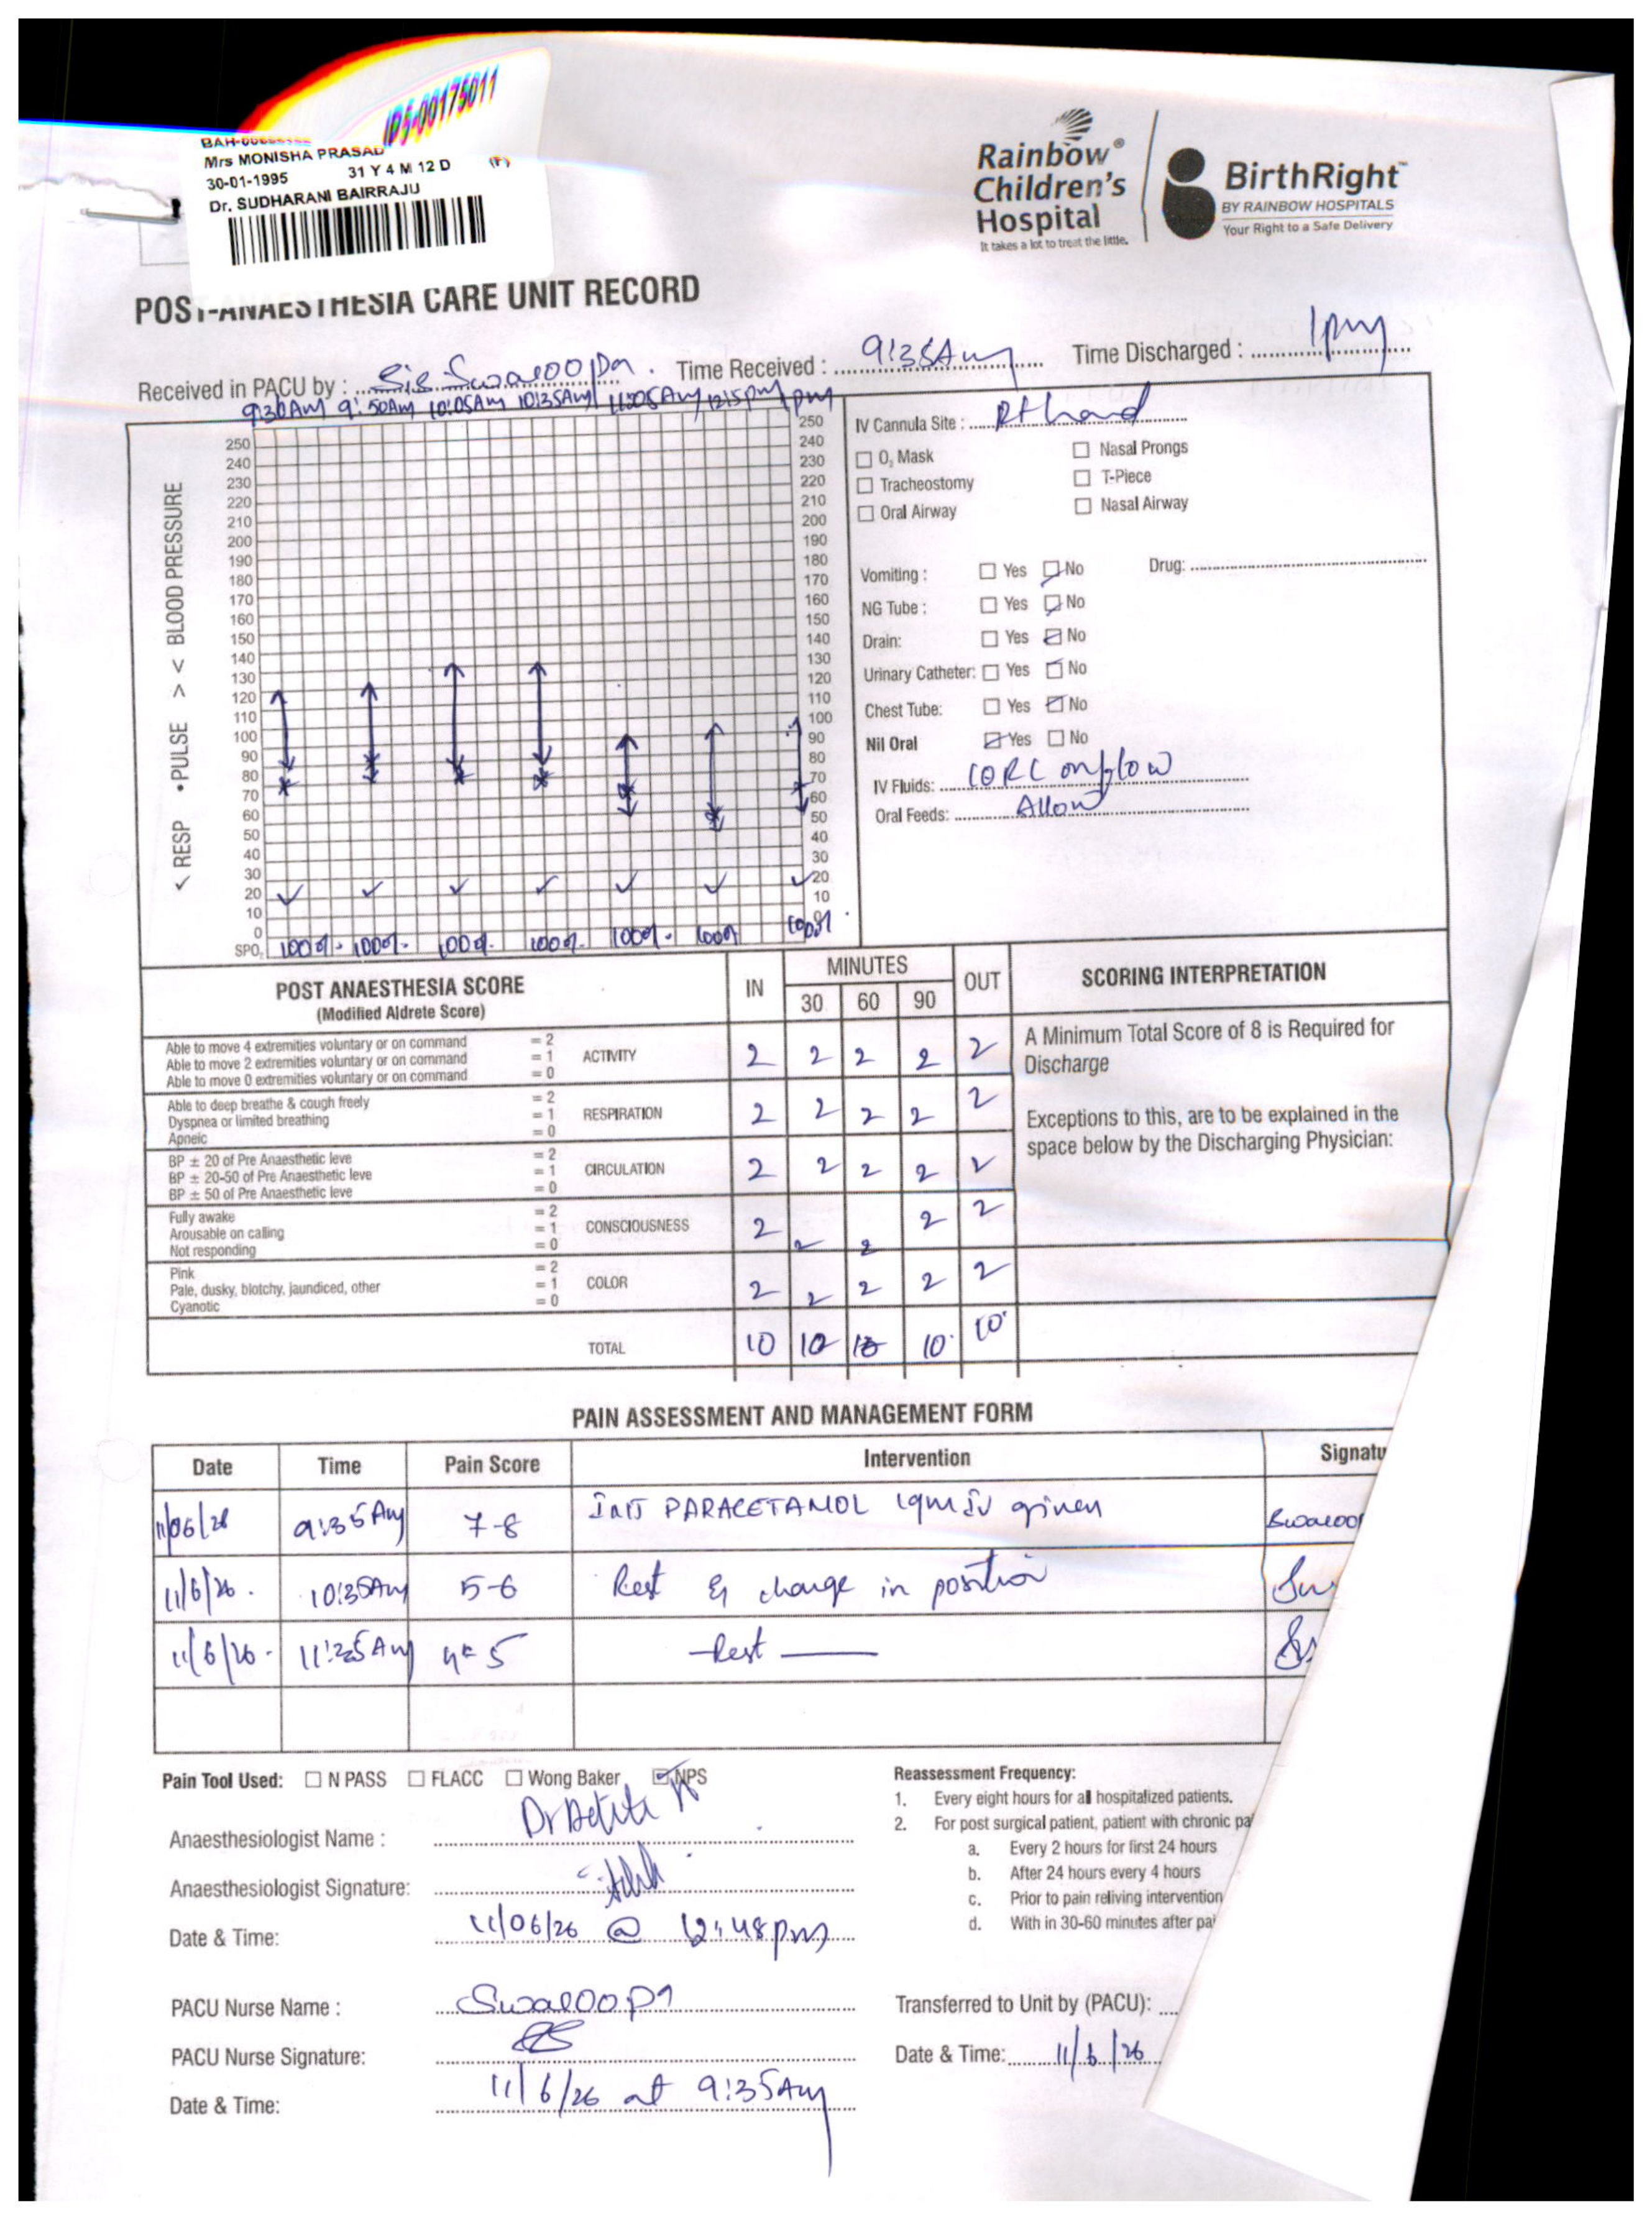 IP5-00175011
Mrs MONISHA PRASAD
30-01-1995 31 Y 4 M 12 D (F)
Dr. SUDHARANI BAIRRAJU
Rainbow®
Children's
Hospital
It takes a lot to treat the little.
BirthRight™
BY RAINBOW HOSPITALS
Your Right to a Safe Delivery
POST-ANAESTHESIA CARE UNIT RECORD
Received in PACU by : Sis Swaroopa. Time Received : 9:35Am Time Discharged : 1pm
9:30Am 9:50Am 10:05Am 10:35Am 11:05Am 12:15pm 1pm
< RESP • PULSE > < BLOOD PRESSURE
250 250
240 240
230 230
220 220
210 210
200 200
190 190
180 180
170 170
160 160
150 150
140 140
130 130
120 120
110 110
100 100
90 90
80 80
70 70
60 60
50 50
40 40
30 30
20 20
10 10
0 0
SPO2 100% 100% 100% 100% 100% 100% 100%
IV Cannula Site : Rt hand
O2 Mask Nasal Prongs
Tracheostomy T-Piece
Oral Airway Nasal Airway
Vomiting : Yes No Drug:
NG Tube : Yes No
Drain: Yes No
Urinary Catheter: Yes No
Chest Tube: Yes No
Nil Oral Yes No
IV Fluids: on flow
Oral Feeds: Allow
POST ANAESTHESIA SCORE
(Modified Aldrete Score)
IN MINUTES OUT
30 60 90
SCORING INTERPRETATION
Able to move 4 extremities voluntary or on command = 2
Able to move 2 extremities voluntary or on command = 1
Able to move 0 extremities voluntary or on command = 0
ACTIVITY 2 2 2 2 2
Able to deep breathe & cough freely = 2
Dyspnea or limited breathing = 1
Apneic = 0
RESPIRATION 2 2 2 2 2
BP ± 20 of Pre Anaesthetic leve = 2
BP ± 20-50 of Pre Anaesthetic leve = 1
BP ± 50 of Pre Anaesthetic leve = 0
CIRCULATION 2 2 2 2 2
Fully awake = 2
Arousable on calling = 1
Not responding = 0
CONSCIOUSNESS 2 2 2 2 2
Pink = 2
Pale, dusky, blotchy, jaundiced, other = 1
Cyanotic = 0
COLOR 2 2 2 2 2
TOTAL 10 10 10 10 10
A Minimum Total Score of 8 is Required for
Discharge
Exceptions to this, are to be explained in the
space below by the Discharging Physician:
PAIN ASSESSMENT AND MANAGEMENT FORM
Date Time Pain Score Intervention Signatu
11/06/26 9:35Am 7-8 INJ PARACETAMOL 1gm IV given Swaroop
11/6/26. 10:35Am 5-6 Rest & change in position
11/6/26. 11:35Am 4-5 Rest
Pain Tool Used: N PASS FLACC Wong Baker NPS
Anaesthesiologist Name :
Anaesthesiologist Signature:
Date & Time: 11/06/26 @ 12:48pm
PACU Nurse Name : Swaroopa
PACU Nurse Signature:
Date & Time: 11/6/26 at 9:35Am
Reassessment Frequency:
1. Every eight hours for all hospitalized patients.
2. For post surgical patient, patient with chronic pa
a. Every 2 hours for first 24 hours
b. After 24 hours every 4 hours
c. Prior to pain reliving intervention
d. With in 30-60 minutes after pai
Transferred to Unit by (PACU):
Date & Time: 11/6/26